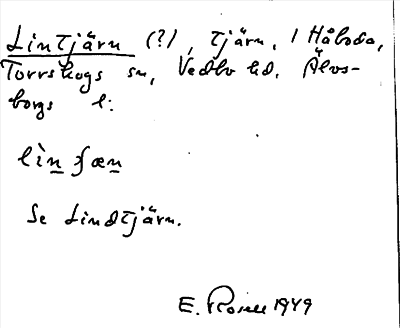 Lintjärn (?), tjärn, i Håboda,
Torrskogs sn, Vedbo hd, Älvs-
borgs l:
Se Lindtjärn.
E. Rosell 1949